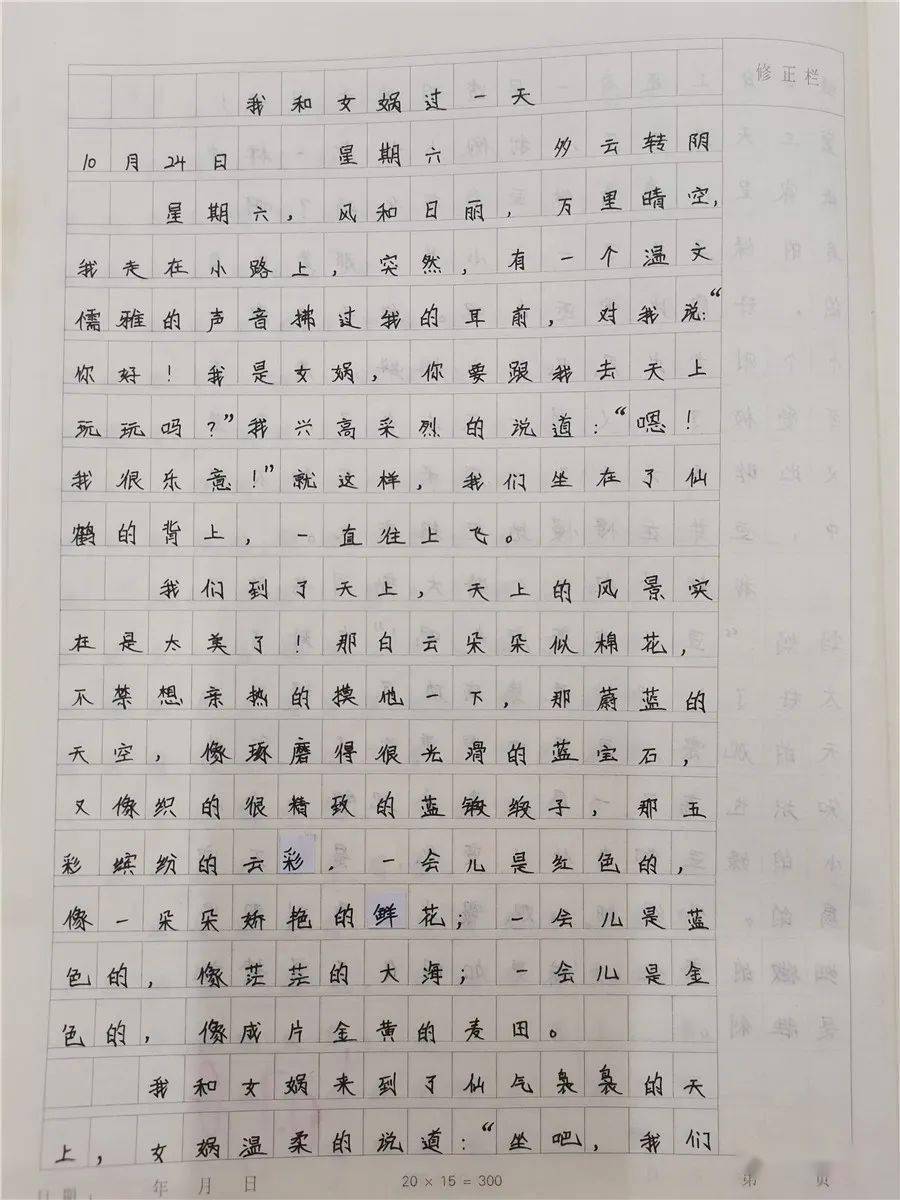 修正栏
我和女娲过一天
10月24日 星期六 多云转阴
星期六，风和日丽，万里晴空，
我走在小路上，突然，有一个温文
儒雅的声音拂过我的耳前，对我说：“
你好！我是女娲，你要跟我去天上
玩玩吗？”我兴高采烈的说道：“嗯！
我很乐意！”就这样，我们坐在了仙
鹤的背上，一直往上飞。
我们到了天上，天上的风景实
在是太美了！那白云朵朵似棉花，
不禁想亲热的摸他一下，那蔚蓝的
天空，像琢磨得很光滑的蓝宝石，
又像织的很精致的蓝缎子，那五
彩缤纷的云彩．一会儿是红色的，
像一朵朵娇艳的鲜花；一会儿是蓝
色的，像茫茫的大海；一会儿是金
色的，像成片金黄的麦田。
我和女娲来到了仙气袅袅的天
上，女娲温柔的说道：“坐吧，我们
年 月 日 20 × 15 = 300 第 页